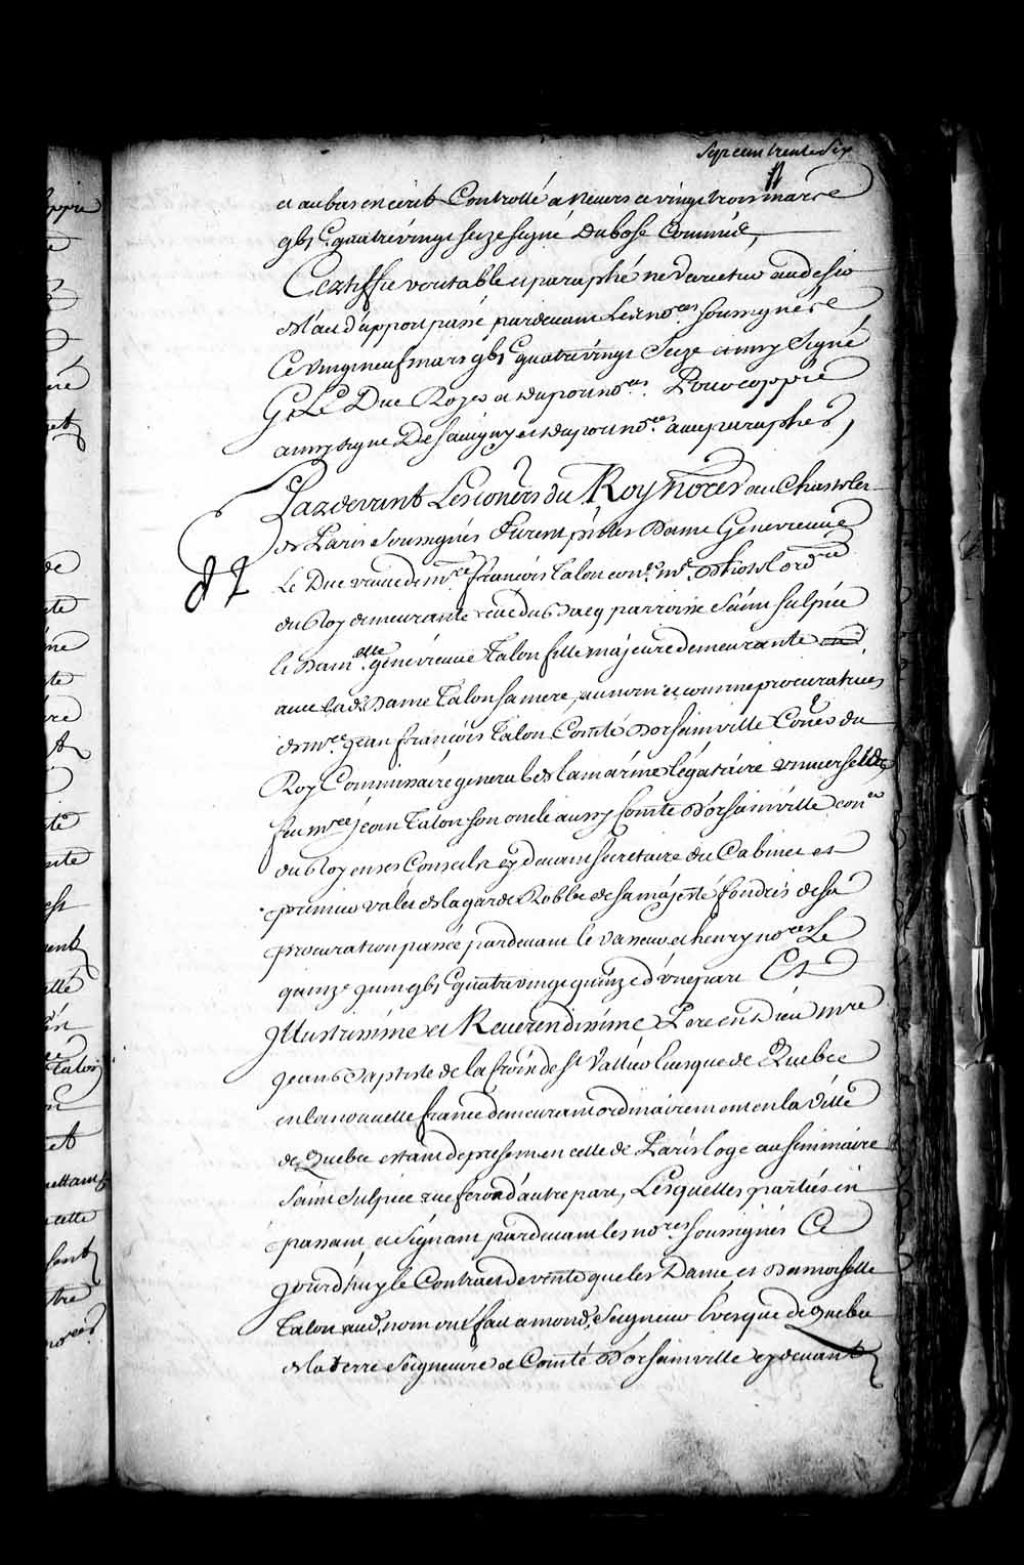 Sept cent trente Six
et au bas en écrit Controllé a Nevers ce vingt trois mars
gbi.C quatre vingt seize signé Dubosc Commis,
Certiffié veritable et paraphé ne varietur au desir
de l'act d'apport passé pardevant Les no.res soussignés
Ce vingt neuf mars gbi.C quatre vingt Seize ainsy Signé
G. Le Duc Roger et Dupont no.res. Pour coppie
ainsy signé De Savigny et Dupont no.res avec paraphes,
Pardevant Les con.ers du Roy No.res au Chastelet
de Paris Soussignés Furent p.ntes Dame Genevieue
Le Duc veuve de m.re françois Talon con.er m.e d'hostel ord.re
du Roy demeurante rue du Bacq parroisse Saint Sulpice
et Dam.elle genevieue Talon fille majeure demeurante
auec lad. Dame Talon sa mere, au nom et comme procuratrices
de m.re Jean françois Talon Comte D'orsainville Con.er du
Roy Commissaire general de la marine légataire universel de
feu m.re jean Talon son oncle aussy Comte D'orsainville con.er
du Roy en ses Conseils cy devant secretaire du Cabinet et
premier valet de la garde Robbe de sa majesté fondées de sa
procuration passée pardevant le Vasseur et henry no.res Le
quinze juin gbi.C quatre vingt quinze d'une part Et
Illustrissime et Reuerendissime Pere en Dieu m.re
Jean Baptiste de la Croix de S.t Vallier Evesque de Quebec
en la nouuelle france demeurant ordinairement en la Ville
de Quebec estant de present en celle de Paris logé au seminaire
Saint Sulpice rue ferou d'autre part, Lesquelles parties en
passant et Signant pardevant les no.res soussignés Ce
jourd'huy le Contract de vente que les Dame et Damoiselle
Talon aud. nom ont fait a mond. Seigneur Evesque de Quebec
de la terre Seigneurie et Comté D'orsainville cy devant